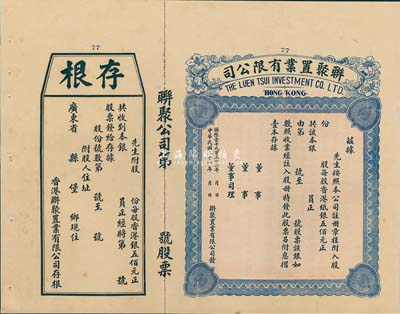 77
司公限有業置聚聯
THE LUEN TSUI INVESTMENT CO., LTD.
HONG KONG
茲據
先生按照本公司註冊章程附入股
份 股每股香港紙銀五佰元正
共該本銀 員正
由第 號至 號股票該銀如
數照收業經註入股冊特發此股票另附息摺
壹本存據
董事
董事
董事司理
中華民國 年 月 日
聯聚置業有限公司發
聯聚公司第 號股票
77
根存
先生附股 份每股香港銀五佰元正
共收到本銀 員正經將第 號
股票發給存據
股份號數第 號至 號
附股人住址
廣東省 縣 堡 鄉現住
香港聯聚置業有限公司存根